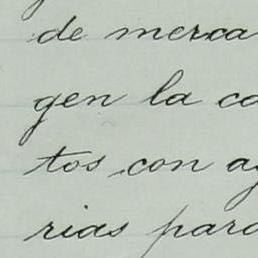 de merca
gen la co
tos con ag
rias para